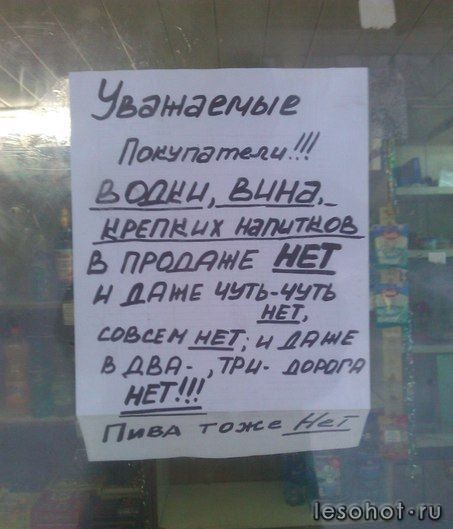 Уважаемые
Покупатели!!!
ВОДКИ, ВИНА,
КРЕПКИХ НАПИТКОВ
В ПРОДАЖЕ НЕТ
И ДАЖЕ ЧУТЬ-ЧУТЬ
НЕТ,
СОВСЕМ НЕТ; И ДАЖЕ
В ДВА-, ТРИ- ДОРОГА
НЕТ!!!
Пива тоже Нет
lesohot.ru